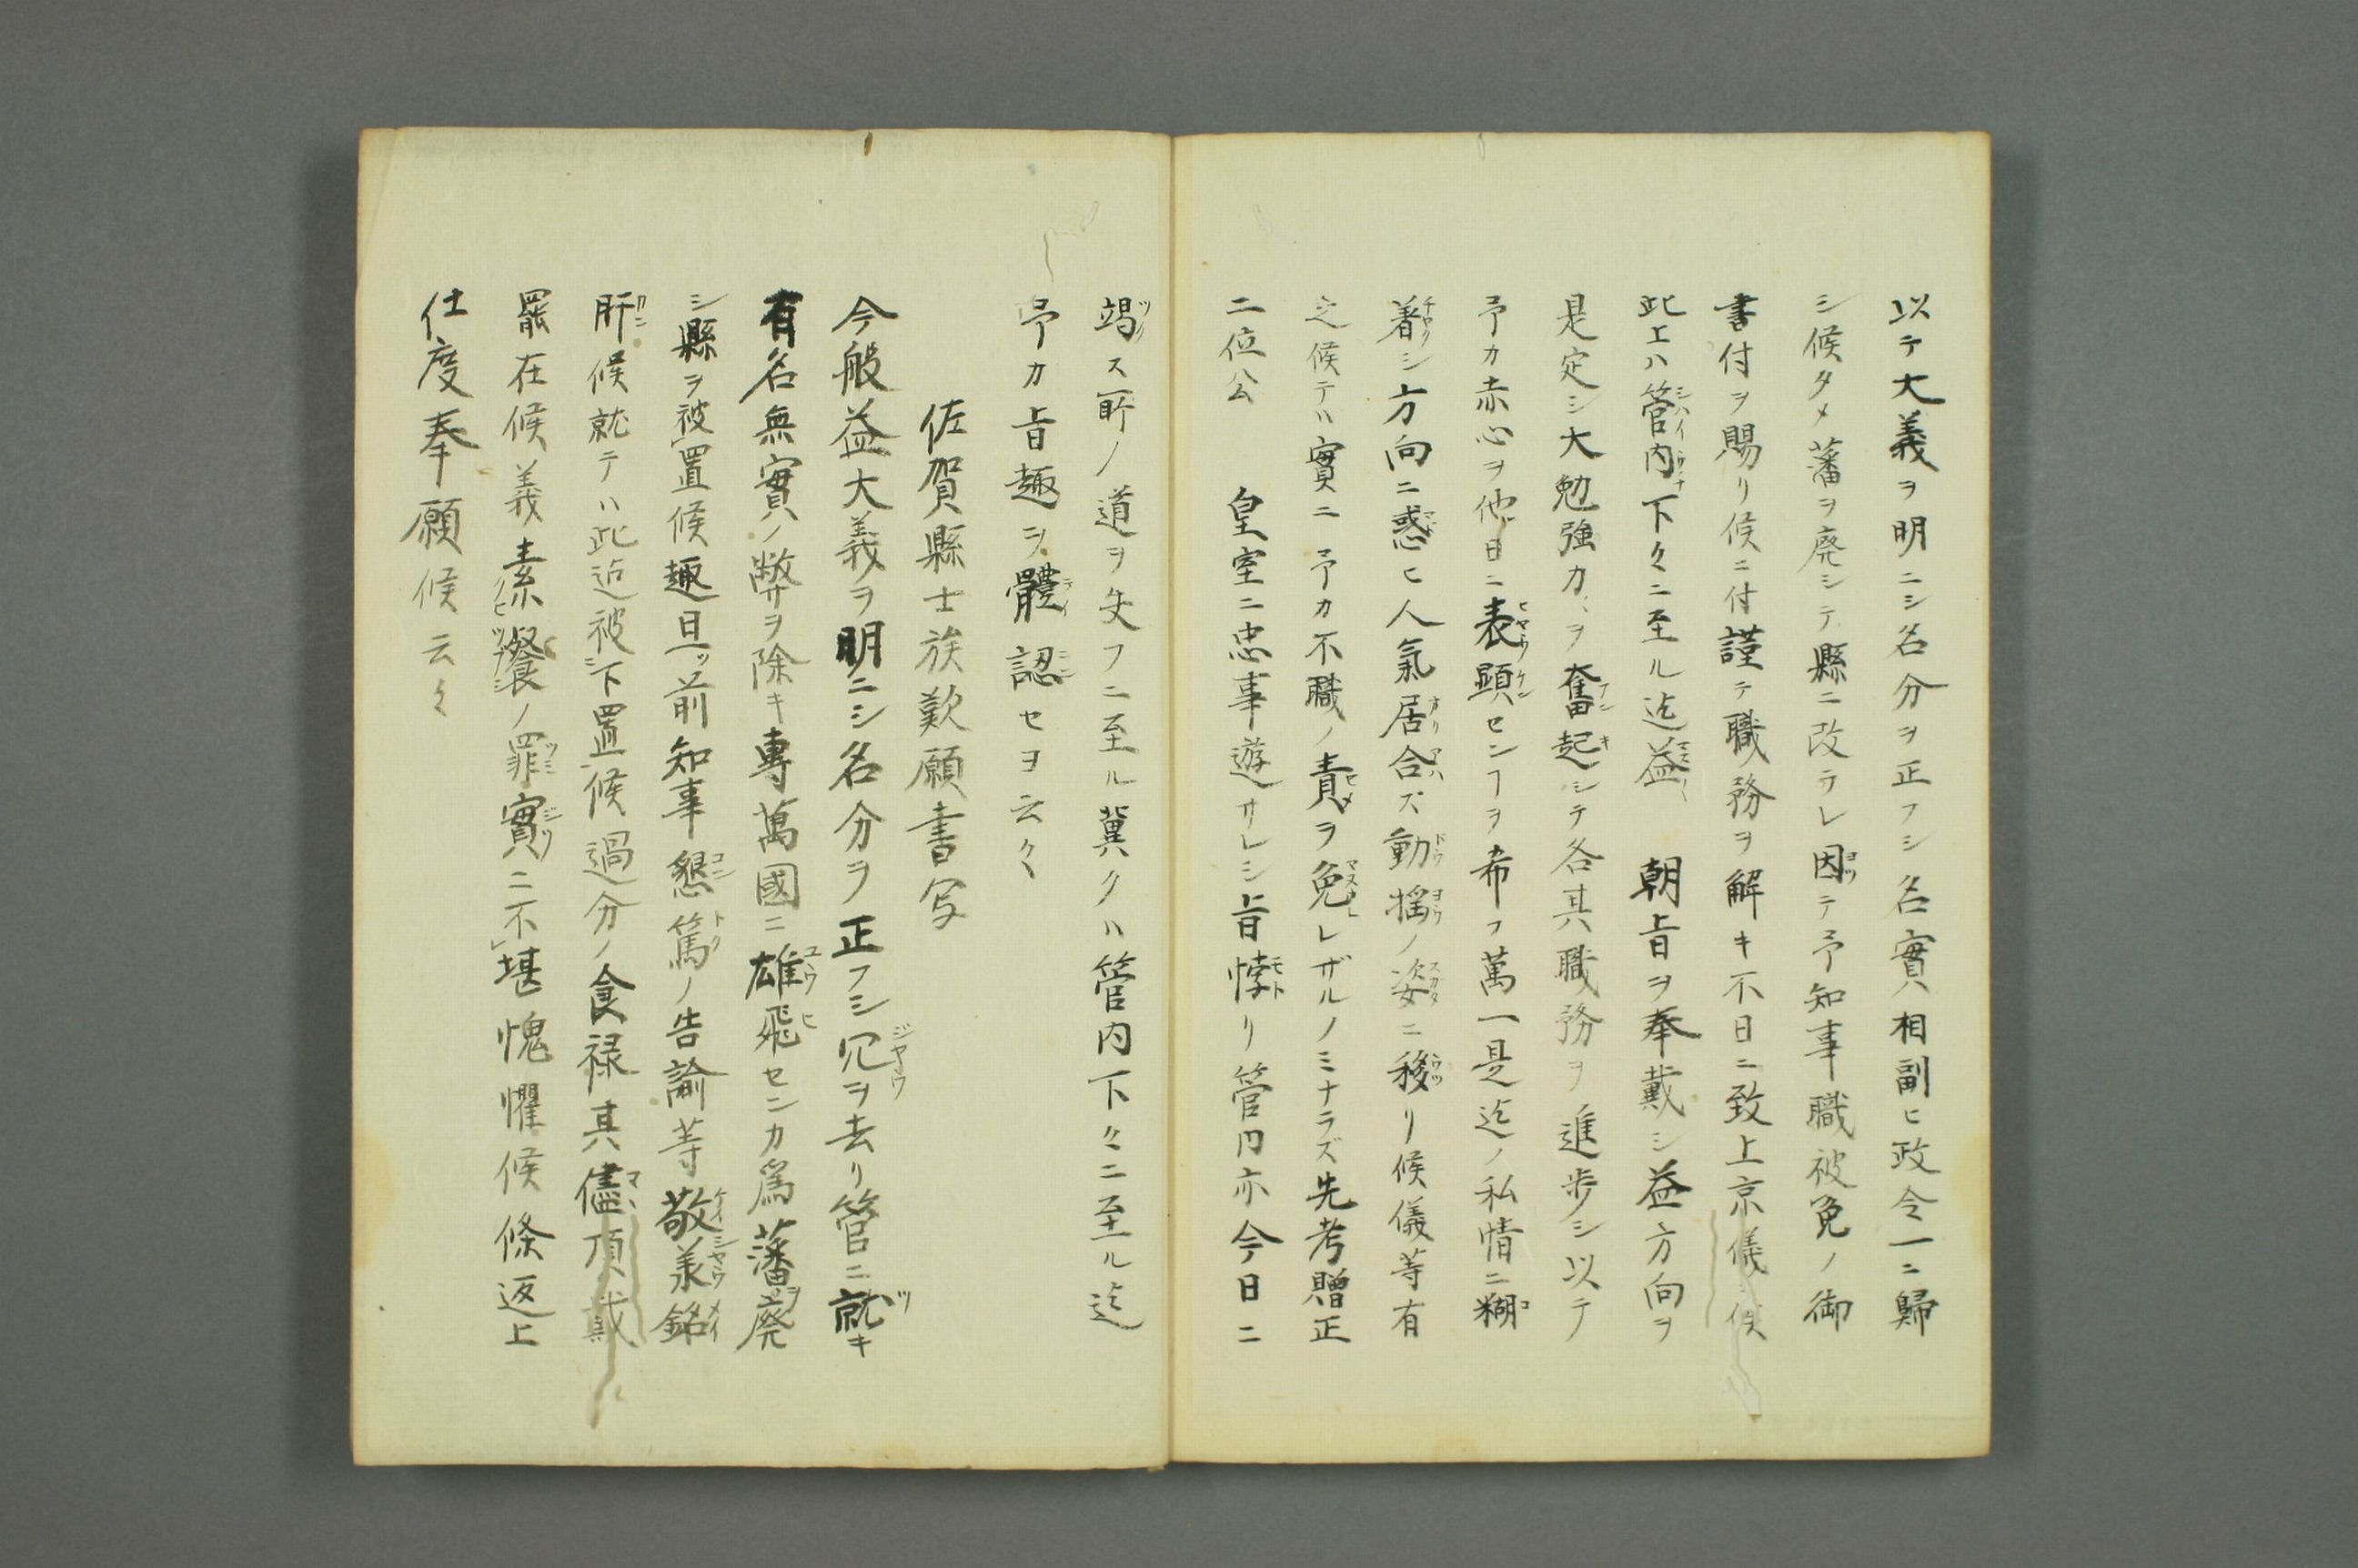 以テ大義ヲ明ニシ名分ヲ正フシ名實相副ヒ政令一ニ歸
シ候タメ藩ヲ廃シテ縣ニ改ラレ因テ予知事職被免ノ御
書付ヲ賜リ候ニ付謹テ職務ヲ解キ不日ニ致上京儀ニ候
此上ハ管内下々ニ至ル迠益 朝旨ヲ奉戴シ益方向ヲ
是定シ大勉強力ヲ奮起シテ各其職務ヲ進歩シ以テ
予カ赤心ヲ他日ニ表顕センヿヲ希フ萬一是迠ノ私情ニ糊
着シ方向ニ惑ヒ人氣居合ズ動揺ノ姿ニ移リ候儀等有
之候テハ實ニ予カ不職ノ責ヲ免レザルノミナラズ先考贈正
二位公 皇室ニ忠事遊サレシ旨悖リ管内亦今日ニ
竭ス所ノ道ヲ失フニ至ル冀クハ管内下々ニ至ル迠
予カ旨趣ヲ體認セヨ云々
佐賀縣士族歎願書写
今般益大義ヲ明ニシ名分ヲ正フシ冗ヲ去リ管ニ就キ
有名無實ノ弊ヲ除キ專萬國ニ雄飛センカ爲藩ヲ廃
シ縣ヲ被置候趣且ッ前知事懇篤ノ告諭等敬承銘
肝候就テハ此迠被下置候過分ノ食禄其儘頂戴
罷在候義素餐ノ罪實ニ不堪愧懼候條返上
仕度奉願候云々